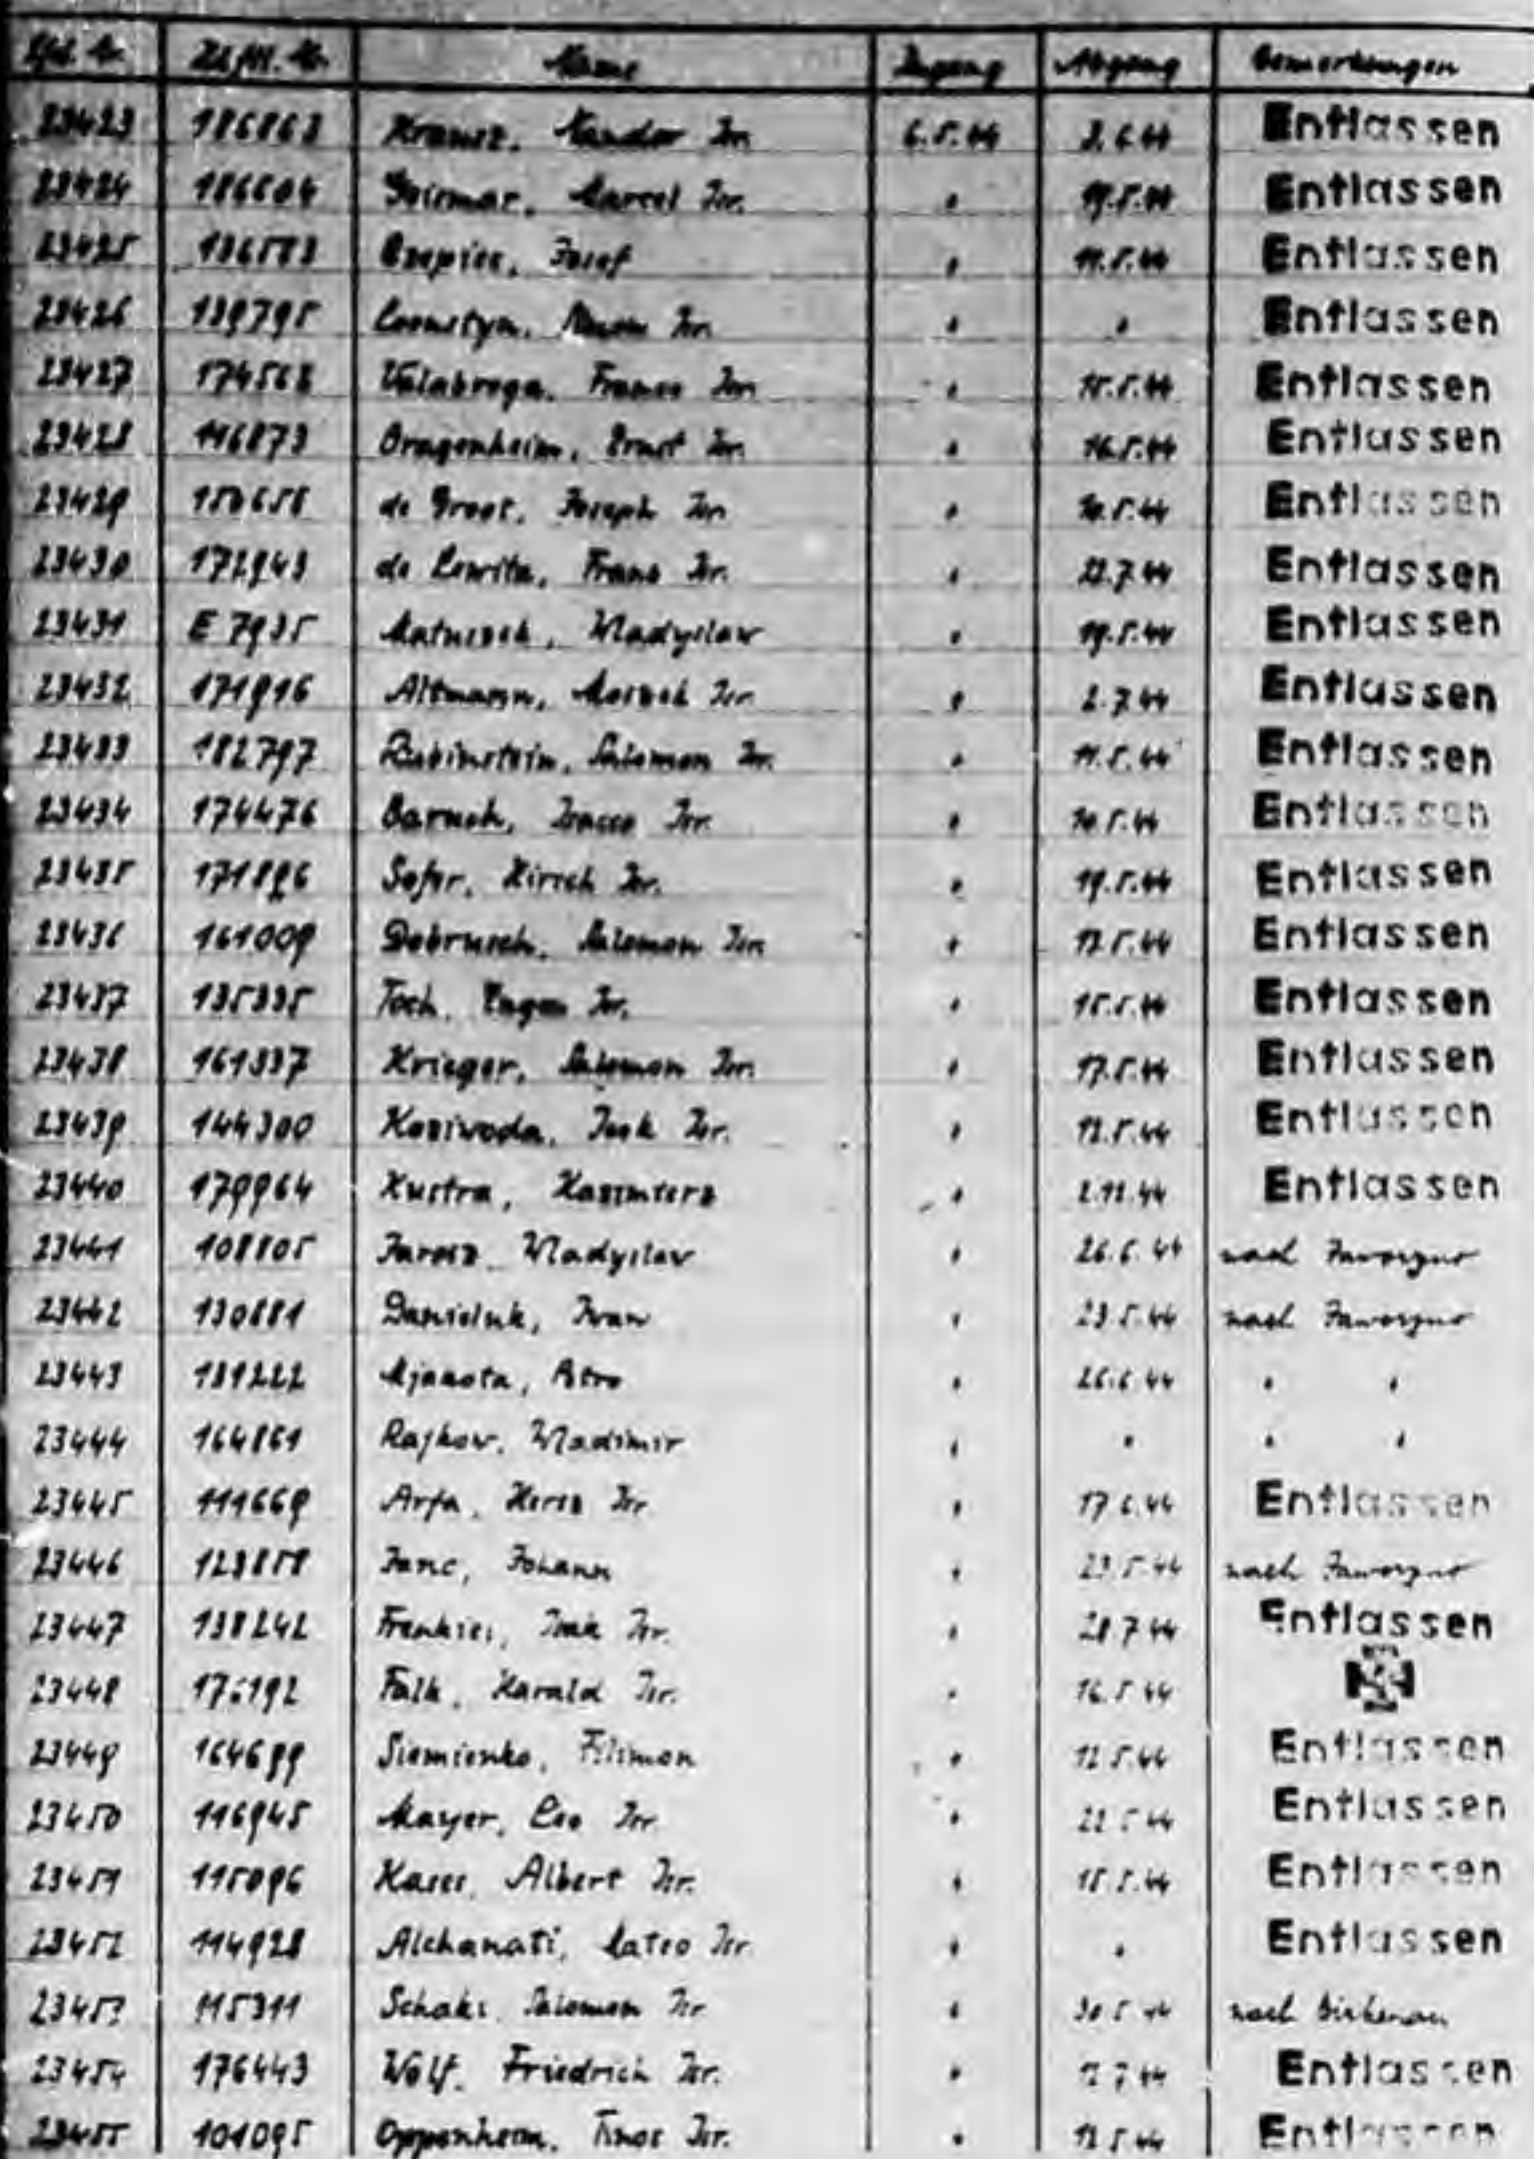 Lfd. Nr. Häftl. Nr. Name Zugang Abgang Bemerkungen
23423 186863 Krausz, Nandor Isr. 6.5.44 2.6.44 Entlassen
23424 186604 Marcel Isr. " 19.5.44 Entlassen
23425 Josef " 11.5.44 Entlassen
23426 139795 Isr. " " Entlassen
23427 174563 Valabrega, Franco Isr. " 15.5.44 Entlassen
23428 116873 Dragenheim, Ernst Isr. " 16.5.44 Entlassen
23429 150658 de Groot, Joseph Isr. " 10.5.44 Entlassen
23430 172943 de Lewita, Frans Isr. " 7.44 Entlassen
23431 E 7935 Matuszek, Wladyslaw " 19.5.44 Entlassen
23432 171916 Altmann, Moszek Isr. " 2.7.44 Entlassen
23433 182797 Rubinstein, Salomon Isr. " 11.5.44 Entlassen
23434 174476 Baruch, Isacco Isr. " 10.5.44 Entlassen
23435 171896 Sofer, Hirsch Isr. " 19.5.44 Entlassen
23436 161009 Dobrusch, Salomon Isr. " 12.5.44 Entlassen
23437 135335 Toch, Eugen Isr. " 15.5.44 Entlassen
23438 161337 Krieger, Salomon Isr. " 17.5.44 Entlassen
23439 144300 Koziwoda, Icek Isr. " 12.5.44 Entlassen
23440 179964 Kustra, Kazimierz " 2.11.44 Entlassen
23441 108805 Jarosz, Wladyslaw " 26.6.44 nach Jaworzno
23442 130881 Danieluk, Iwan " 23.5.44 nach Jaworzno
23443 131222 Petro " 26.6.44 " "
23444 164861 Rajkow, Wladimir " " " "
23445 111669 Arfa, Hersz Isr. " 17.6.44 Entlassen
23446 123858 Janc, Johann " 23.5.44 nach Jaworzno
23447 138242 Frenkiel, Isak Isr. " 28.7.44 Entlassen
23448 176192 Falk, Harald Isr. " 16.5.44
23449 164699 Siemienko, Filimon " 12.5.44 Entlassen
23450 116945 Mayer, Leo Isr. " 22.5.44 Entlassen
23451 115096 Kases, Albert Isr. " 15.5.44 Entlassen
23452 114928 Alchanati, Mateo Isr. " " Entlassen
23453 115311 Schaki, Salomon Isr. " 30.5.44 nach Birkenau
23454 176443 Wolf, Friedrich Isr. " 7.44 Entlassen
23455 101095 Oppenheim, Isr. " 12.5.44 Entlassen